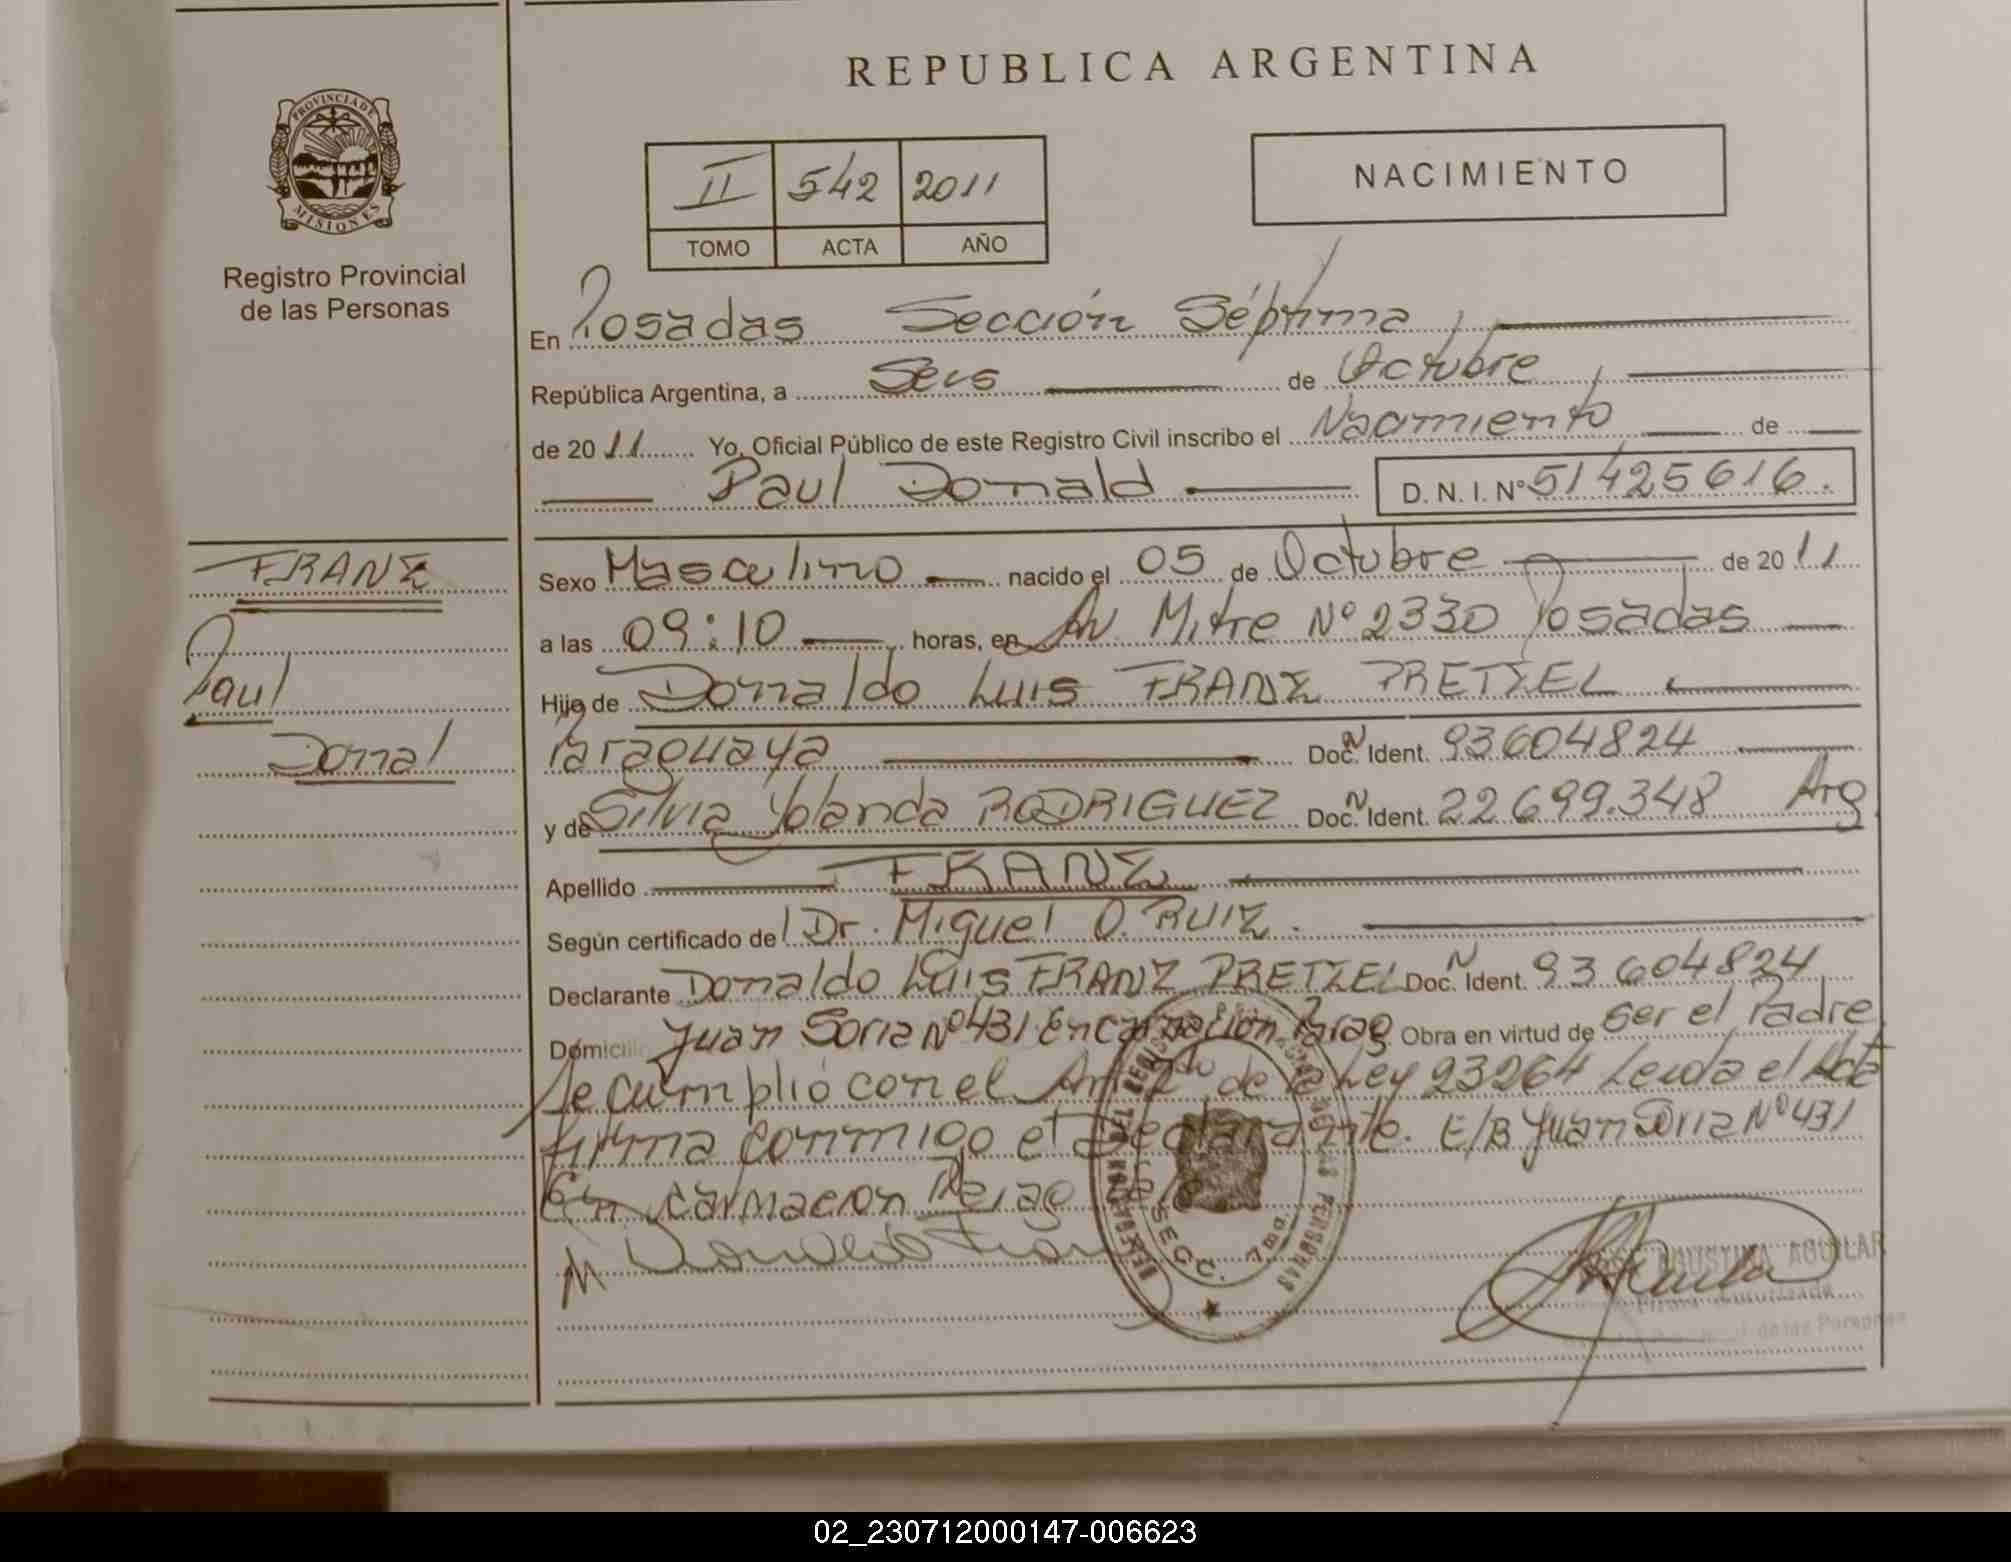 REPUBLICA ARGENTINA
PROVINCIA DE
MISIONES
Registro Provincial
de las Personas
II 542 2011
TOMO ACTA AÑO
NACIMIENTO
En Posadas Sección Séptima
República Argentina, a Seis de Octubre
de 2011 Yo, Oficial Público de este Registro Civil inscribo el Nacimiento de
Paul Donald D. N. I. Nº 51425616.
FRANZ
Paul
Donal
Sexo Masculino nacido el 05 de Octubre de 2011
a las 09:10 horas, en Av. Mitre Nº 2330 Posadas
Hijo de Donaldo Luis FRANZ PRETZEL
Paraguaya Doc. N Ident. 93604824
y de Silvia Yolanda RODRIGUEZ Doc. N Ident. 22699.348 Arg
Apellido FRANZ
Según certificado del Dr. Miguel O. RUIZ.
Declarante Donaldo Luis FRANZ PRETZEL Doc. N Ident. 93604824
Domicilio Juan Soria Nº 431 Encarnación Parag Obra en virtud de ser el Padre
Se cumplió con el Art 2do de la Ley 23264 Leida el Acta
firma conmigo el Declarante. E/B Juan Soria Nº 431
Encarnacion Parag
Donaldo Franz
SECC. 7ma.
AGUSTINA AGUILAR
Firma Autorizada
02_230712000147-006623